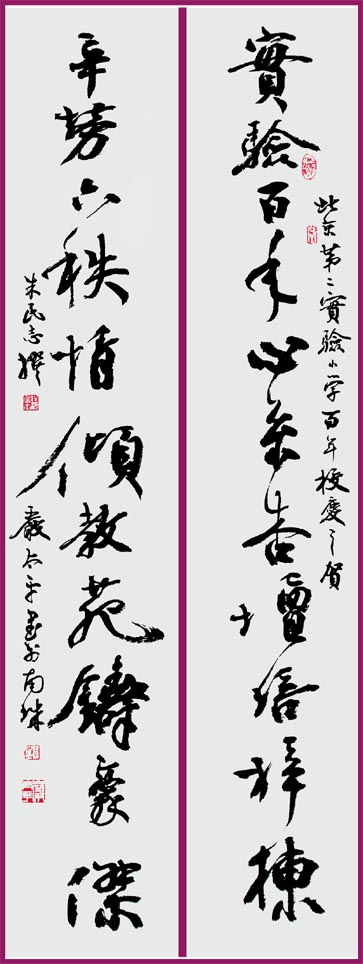 實驗百年心系杏壇培梓棟
北京第二實驗小学百年校慶之賀
辛勞六秩情傾教苑鑄豪傑
朱民志撰
嚴太平書于南珠